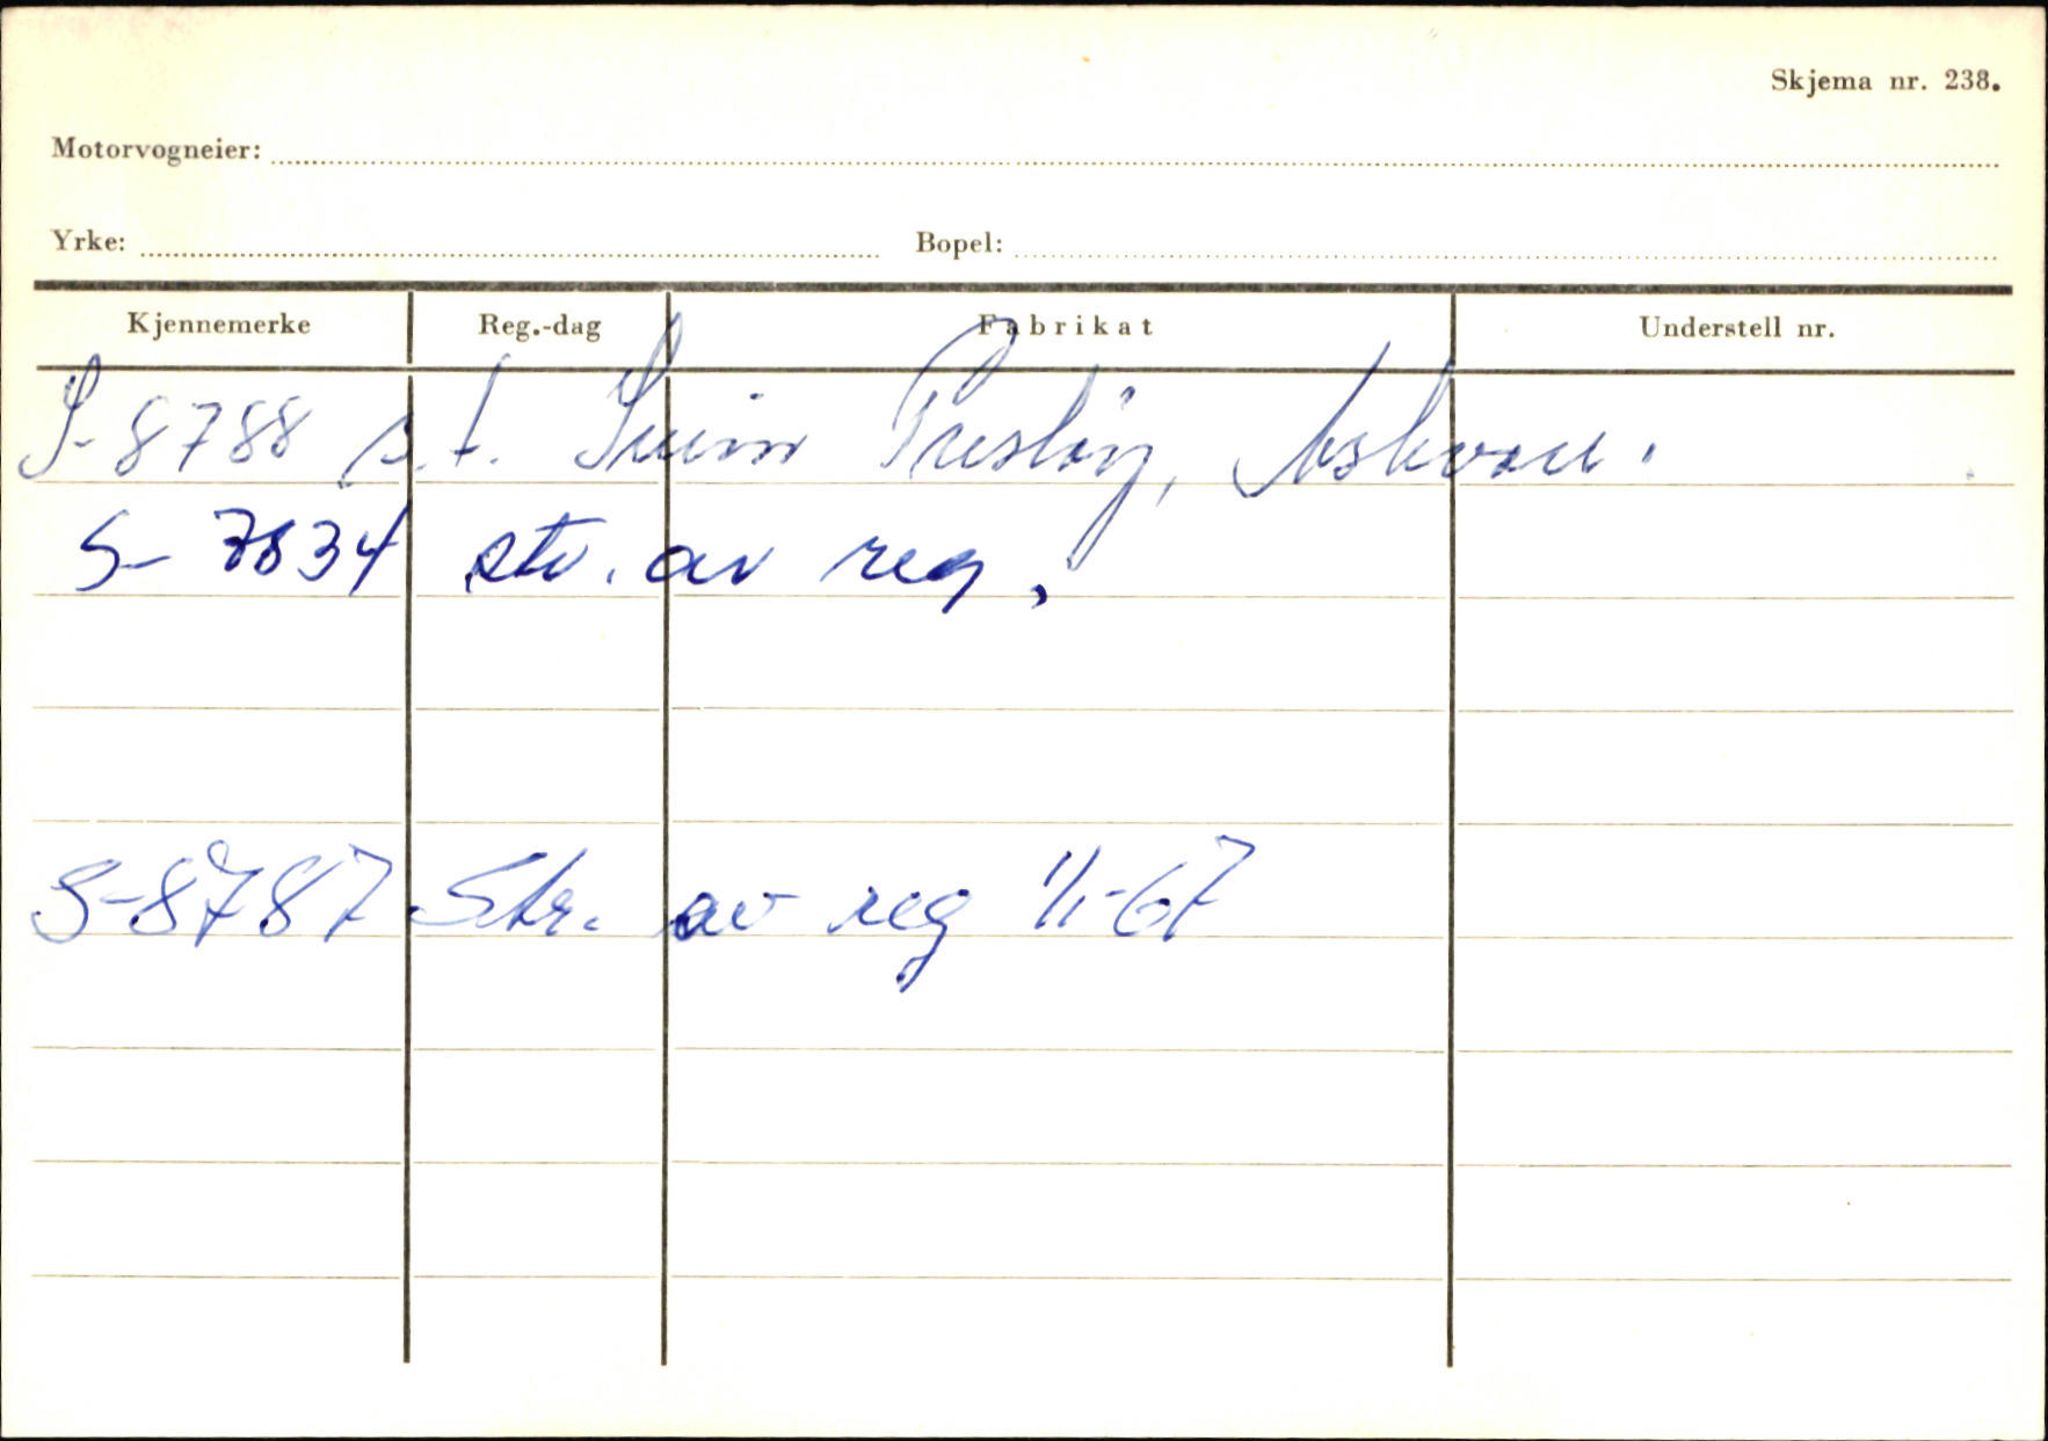 Skjema nr. 238.
Motorvogneier:
Yrke: Bopel:
Kjennemerke Reg.-dag Fabrikat Understell nr.
S-8788 s.t. Svein Prestøy, Askvoll.
S- 7834 str. av reg.
S-8787 Str. av reg 1/1-67